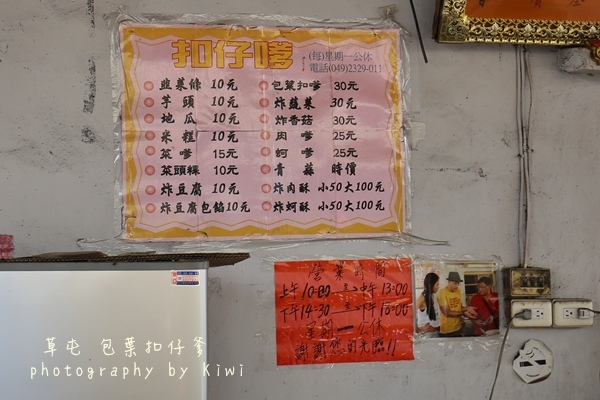 扣仔嗲
(每)星期一公休
電話(049)2329-011
韭菜條 10元
芋頭 10元
地瓜 10元
米糕 10元
菜嗲 15元
菜頭粿 10元
炸豆腐 10元
炸豆腐包餡10元
包葉扣嗲 30元
炸蔬菜 30元
炸香菇 30元
肉嗲 25元
蚵嗲 25元
青蒜 時價
炸肉酥 小50大100元
炸蚵酥 小50大100元
營業時間
上午10:00 中午13:00
下午14:30 下午18:00
星期一公休
謝謝您的光臨!!
草屯 包葉扣仔爹
photography by Kiwi